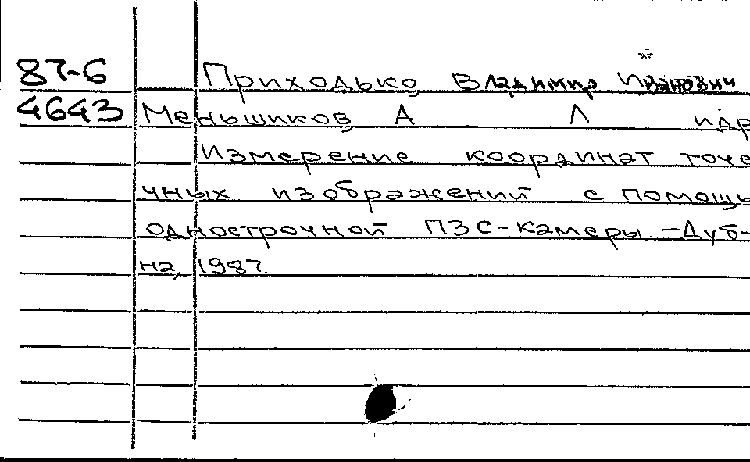 87-6 Приходько Владимир Иванович
4643 Меньшиков А Л и др
Измерение координат точе
чных изображений с помощь
однострочной ПЗС-камеры -Дуб-
на, 1987